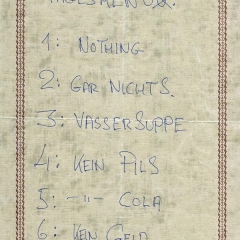 TAGESMENUE:
1: NOTHING
2: GAR NICHTS.
3: VASSERSUPPE
4: KEIN PILS
5: -"- COLA
6: KEIN GELD